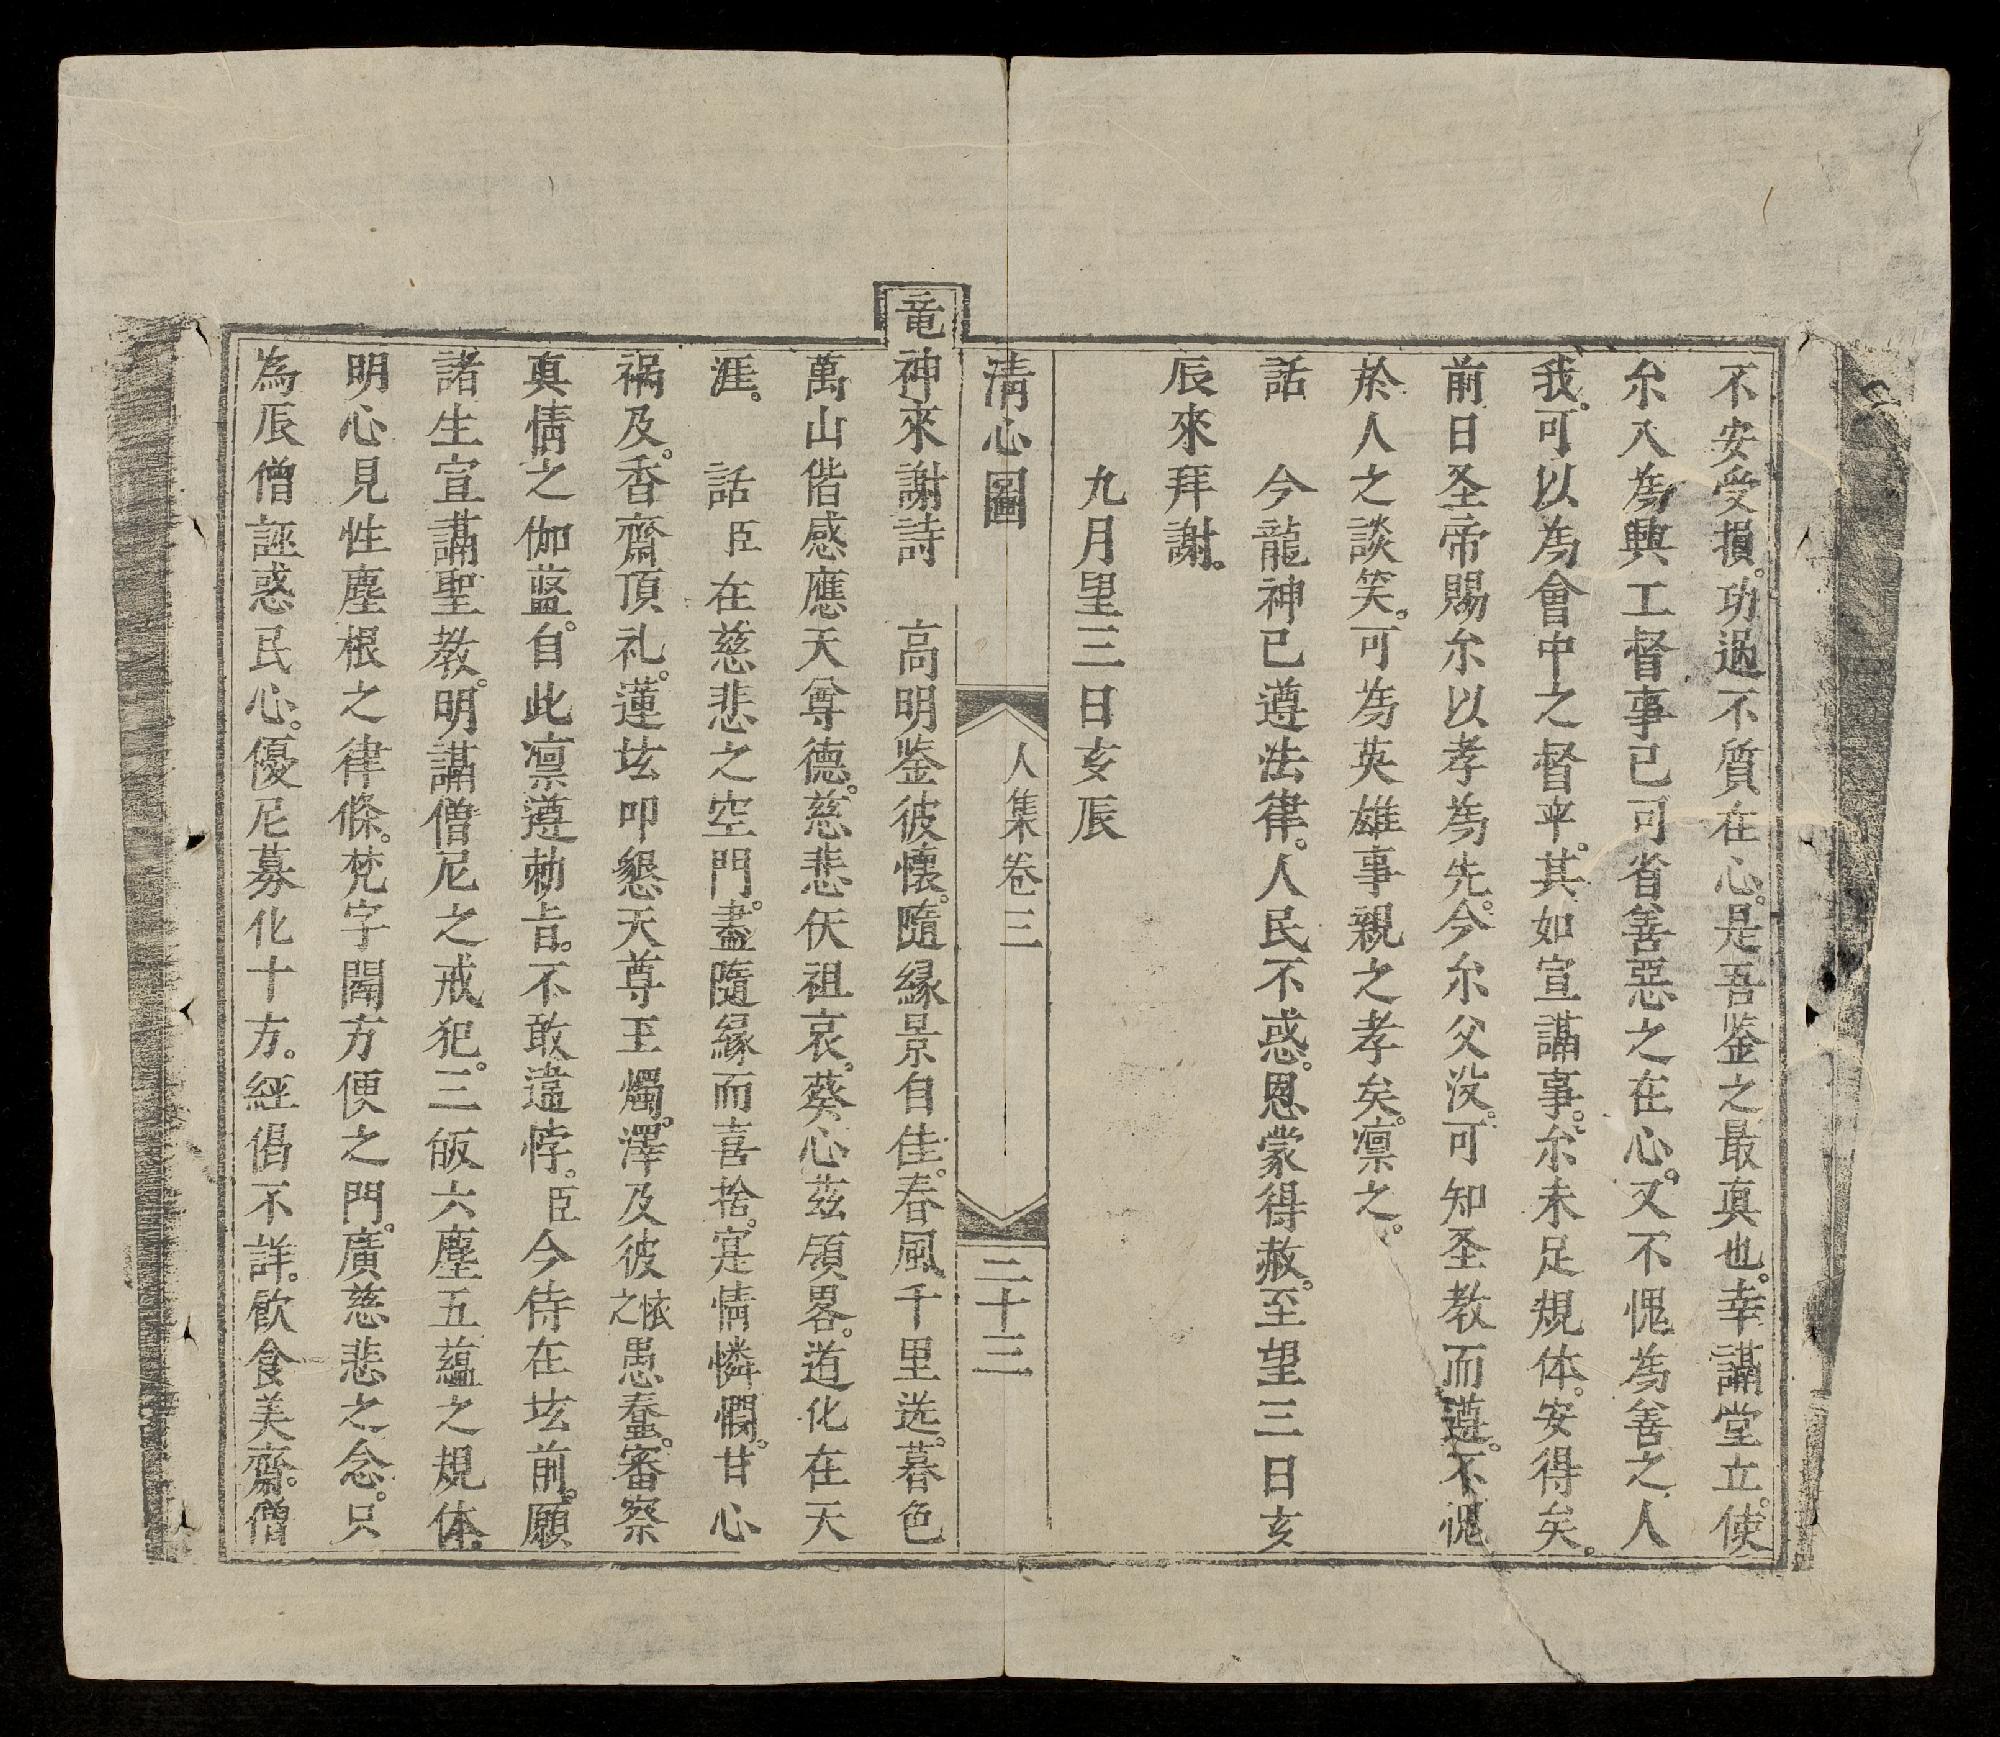 不安受損。功過不質在心。是吾鉴之最真也。幸講堂立。使
尒入為興工督事已可省善惡之在心。又不愧為善之人
我。可以為會中之督平。其如宣講事。尒未足規体。安得矣。
前日圣帝賜尒以孝為先。今尒父没。可知圣教而遵。不愧
於人之談笑。可為英雄事親之孝矣。凛之。
話　今龍神已遵法律。人民不惑。恩蒙得赦。至望三日亥
辰來拜謝。
九月里三日亥辰
清心圖　人集卷三　二十三
竜神來謝詩　高明鉴彼懷。隨縁景自佳。春風千里选。暮色
萬山偕感應天尊德。慈悲仸祖哀。葵心茲領畧。道化在天
涯。　話臣在慈悲之空門。盡隨緣而喜捨。寔情憐憫。甘心
禍及。香齋頂礼。蓮坛叩懇天尊玉燭。澤及彼之依愚蠢。審察
真情之伽藍。自此凛遵勅旨。不敢違悖。臣今侍在坛前。願
諸生宣講聖教。明講僧尼之戒犯。三皈六塵五蘊之規体。
明心見性塵根之律條。梵字闡方便之門。廣慈悲之念。只
為辰僧誣惑民心。優尼募化十方。經偈不詳。飲食美齋。僧